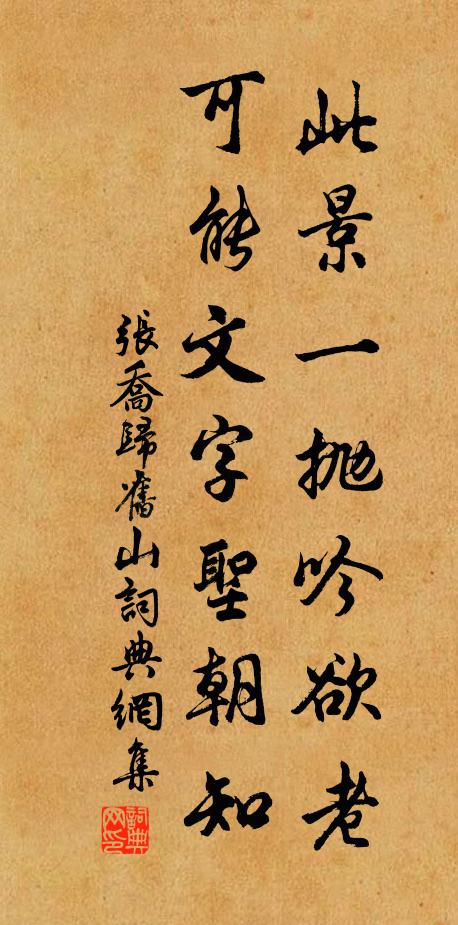 此景一拋吟欲老
可能文字聖朝知
張喬歸舊山詞典網集
詞典網印